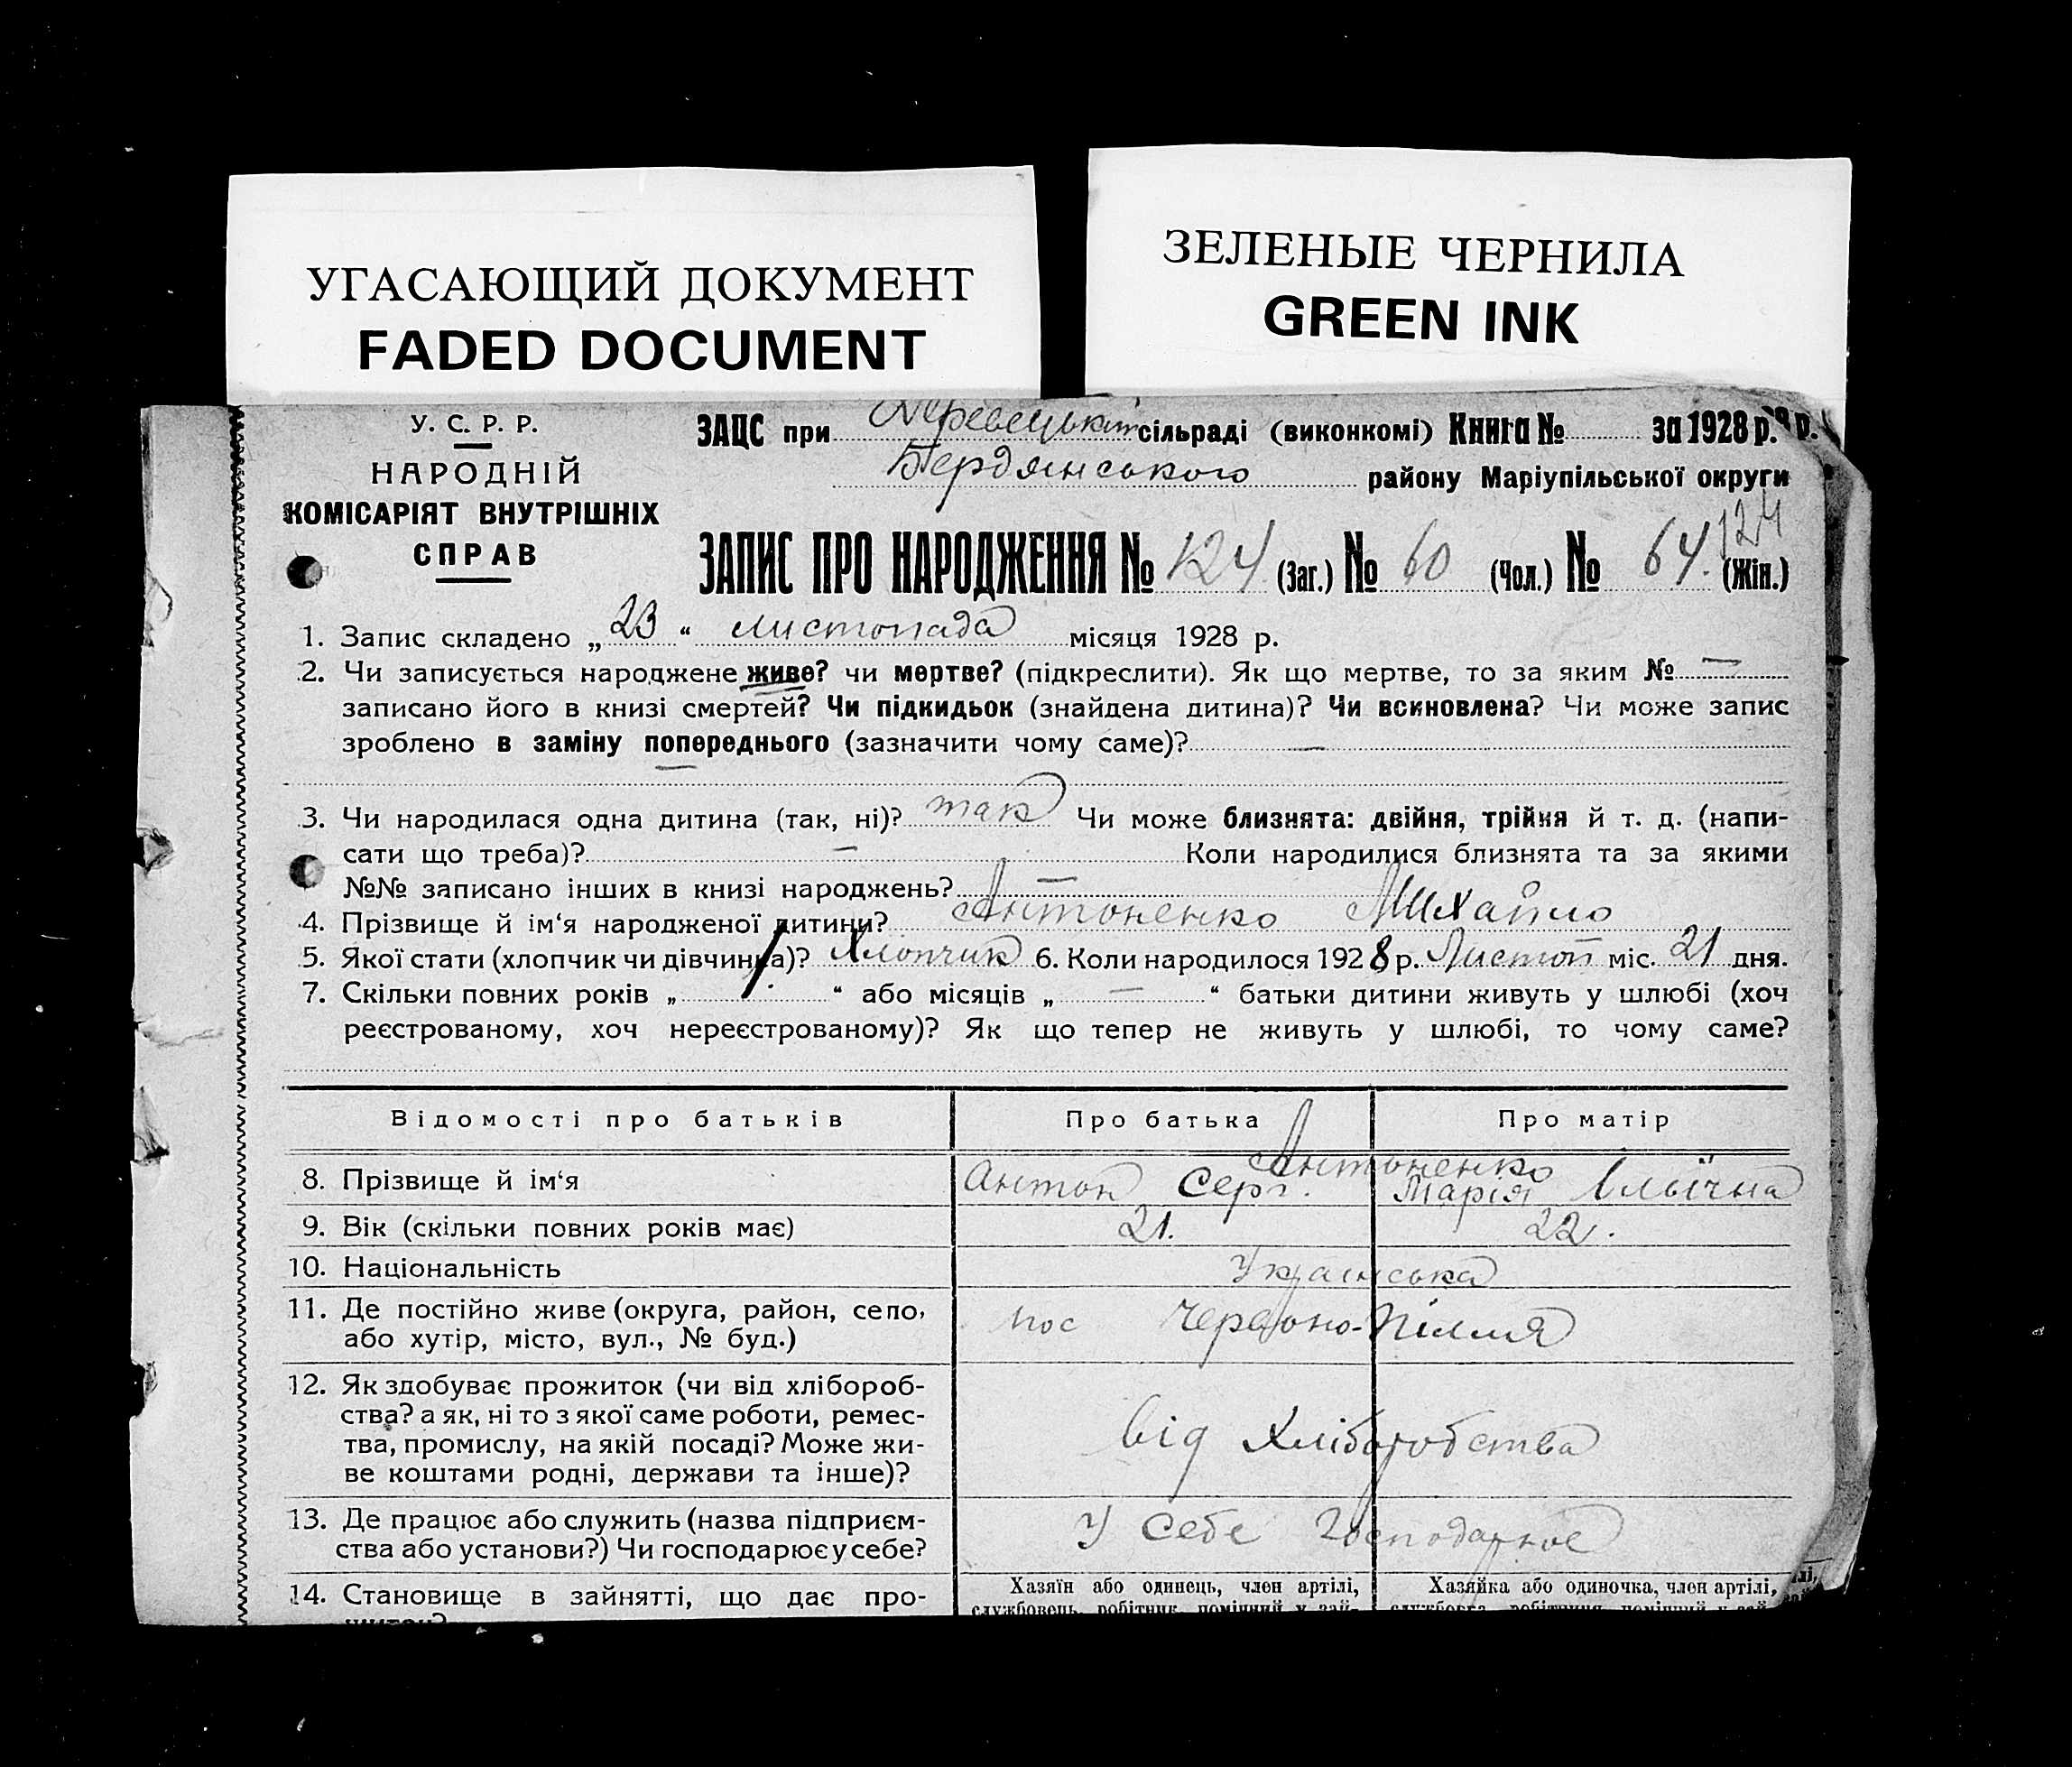 УГАСАЮЩИЙ ДОКУМЕНТ
FADED DOCUMENT
ЗЕЛЕНЫЕ ЧЕРНИЛА
GREEN INK
У. С. Р. Р.
НАРОДНІЙ
КОМІСАРІЯТ ВНУТРІШНІХ
СПРАВ
ЗАЦС при сільраді (виконкомі) Книга № за 1928 р.
Бердянського району Маріупільської округи
124
ЗАПИС ПРО НАРОДЖЕННЯ № 124 (Заг.) № 60 (Чол.) № 64. (Жін.)
1. Запис складено „23“ листопада місяця 1928 р.
2. Чи записується народжене живе? чи мертве? (підкреслити). Як що мертве, то за яким № —
записано його в книзі смертей? Чи підкидьок (знайдена дитина)? Чи всиновлена? Чи може запис
зроблено в заміну попереднього (зазначити чому саме)? —
3. Чи народилася одна дитина (так, ні)? так Чи може близнята: двійня, трійня й т. д. (напи-
сати що треба)? — Коли народилися близнята та за якими
№№ записано інших в книзі народжень? —
4. Прізвище й ім‘я народженої дитини? Антоненко Михайло
5. Якої стати (хлопчик чи дівчинка)? Хлопчик 6. Коли народилося 1928 р. Листоп міс. 21 дня.
7. Скільки повних років „ 1. “ або місяців „ — “ батьки дитини живуть у шлюбі (хоч
реєстрованому, хоч нереєстрованому)? Як що тепер не живуть у шлюбі, то чому саме?
Відомості про батьків Про батька Про матір
8. Прізвище й ім‘я Антоненко
Антон Серг. Марія Ільїчна
9. Вік (скільки повних років має) 21. 22.
10. Національність Українська
11. Де постійно живе (округа, район, село,
або хутір, місто, вул., № буд.)
пос Червоно-Пілля
12. Як здобуває прожиток (чи від хлібороб-
ства? а як, ні то з якої саме роботи, ремес-
тва, промислу, на якій посаді? Може жи-
ве коштами родні, держави та інше)?
від Хліборобства
13. Де працює або служить (назва підприєм-
ства або установи?) Чи господарює у себе?
У себе Господарює
14. Становище в зайнятті, що дає про-
житок?
Хазяїн або одинець, член артілі,
службовець, робітник, помічний у зай-
Хазяйка або одиночка, член артілі,
службовка, робітниця, помічний у зай-